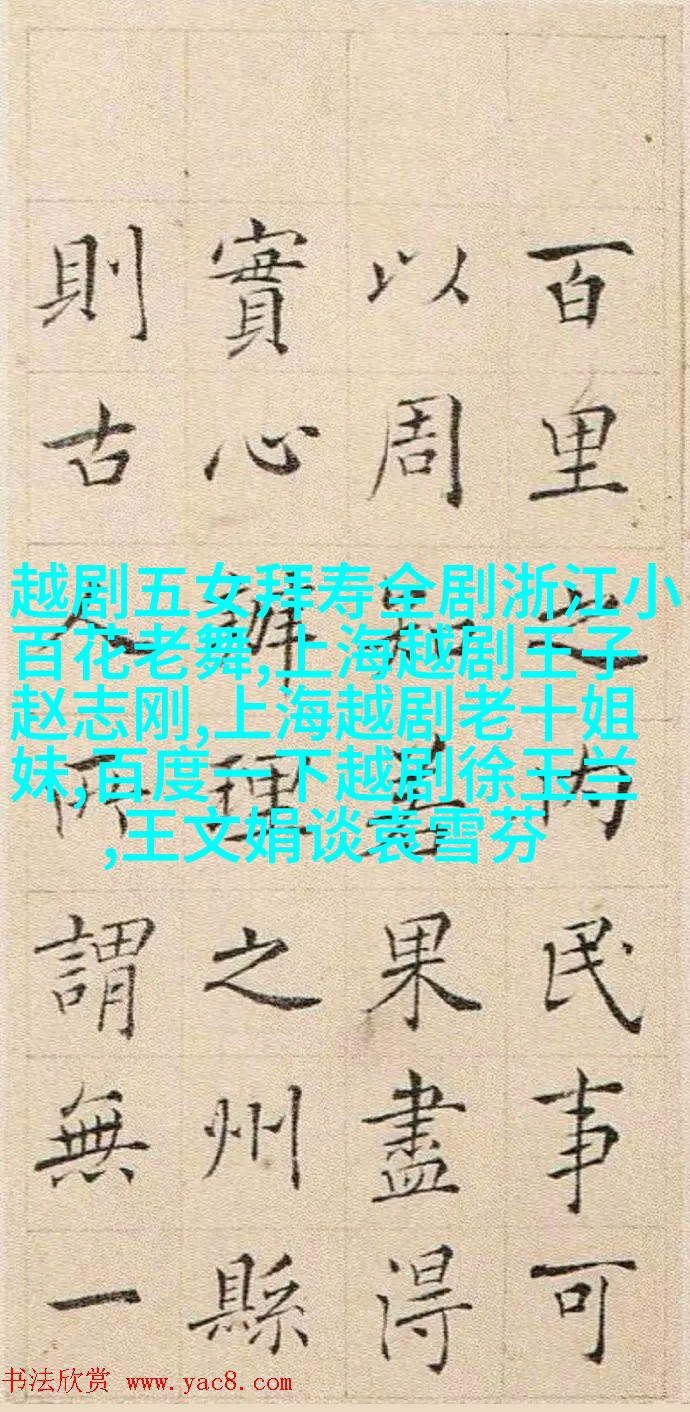 百里之内民事可
以周知若果盡得
實心辦理之州縣
則古人所謂無一
越剧五女拜寿全剧浙江小
百花老舞,上海越剧王子
赵志刚,上海越剧老十姐
妹,百度一下越剧徐玉兰
,王文娟谈袁雪芬
书法欣赏 www.yac8.com